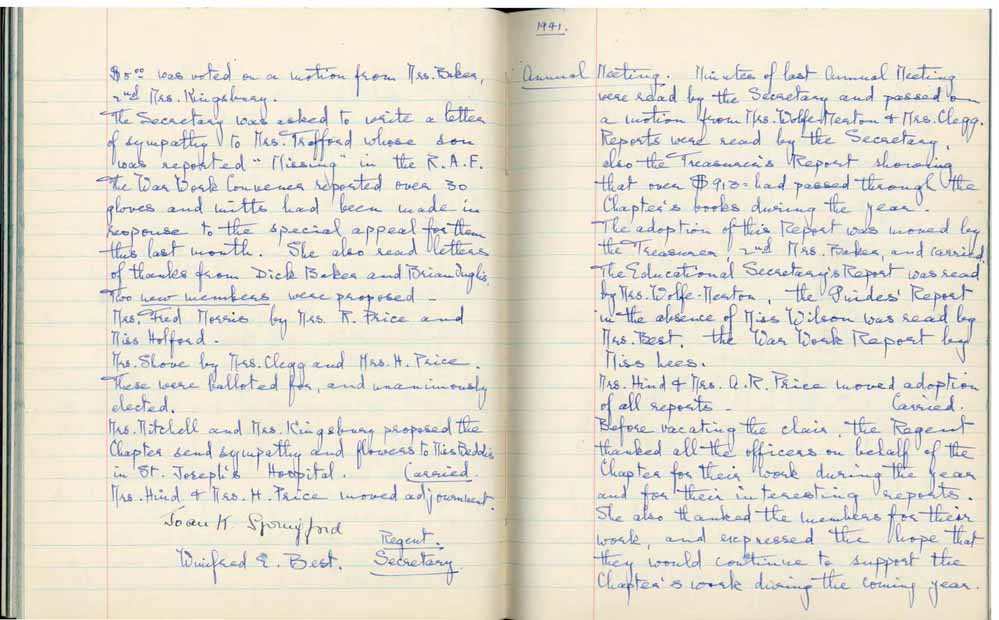 $5.00 was voted on a motion from Mrs. Baker,
2nd Mrs. Kingsbury.
The Secretary was asked to write a letter
of sympathy to Mrs. Trafford whose son
was reported "Missing" in the R.A.F.
The War Work Convener reported over 30
gloves and mitts had been made in
response to the special appeal for them
this last month. She also read letters
of thanks from Dick Baker and Brian Inglis.
Two new members were proposed -
Mrs. Fred Morris by Mrs. R. Price and
Miss Holford.
Mrs. Shove by Mrs. Clegg and Mrs. H. Price.
These were balloted for, and unanimously
elected.
Mrs. Mitchell and Mrs. Kingsbury proposed the
Chapter send sympathy and flowers to Miss Beddis
in St. Joseph's Hospital. Carried.
Mrs. Hind & Mrs. H. Price moved adjournment.
Joan K. Springford
Regent.
Winifred E. Best. Secretary.
1941.
Annual Meeting. Minutes of last Annual Meeting
were read by the Secretary and passed on
a motion from Mrs. Wolfe-Merton & Mrs. Clegg.
Reports were read by the Secretary,
also the Treasurer's Report showing
that over had passed through the
Chapter's books during the year.
The adoption of this Report was moved by
the Treasurer, 2nd Mrs. Baker, and carried.
The Educational Secretary's Report was read
by Mrs. Wolfe-Merton, the Guides' Report
in the absence of Miss Wilson was read by
Mrs. Best. the War Work Report by
Miss Lees.
Mrs. Hind & Mrs. A.R. Price moved adoption
of all reports - Carried.
Before vacating the chair, the Regent
thanked all the officers on behalf of the
Chapter for their work during the year
and for their interesting reports.
She also thanked the members for their
work, and expressed the hope that
they would continue to support the
Chapter's work during the coming year.